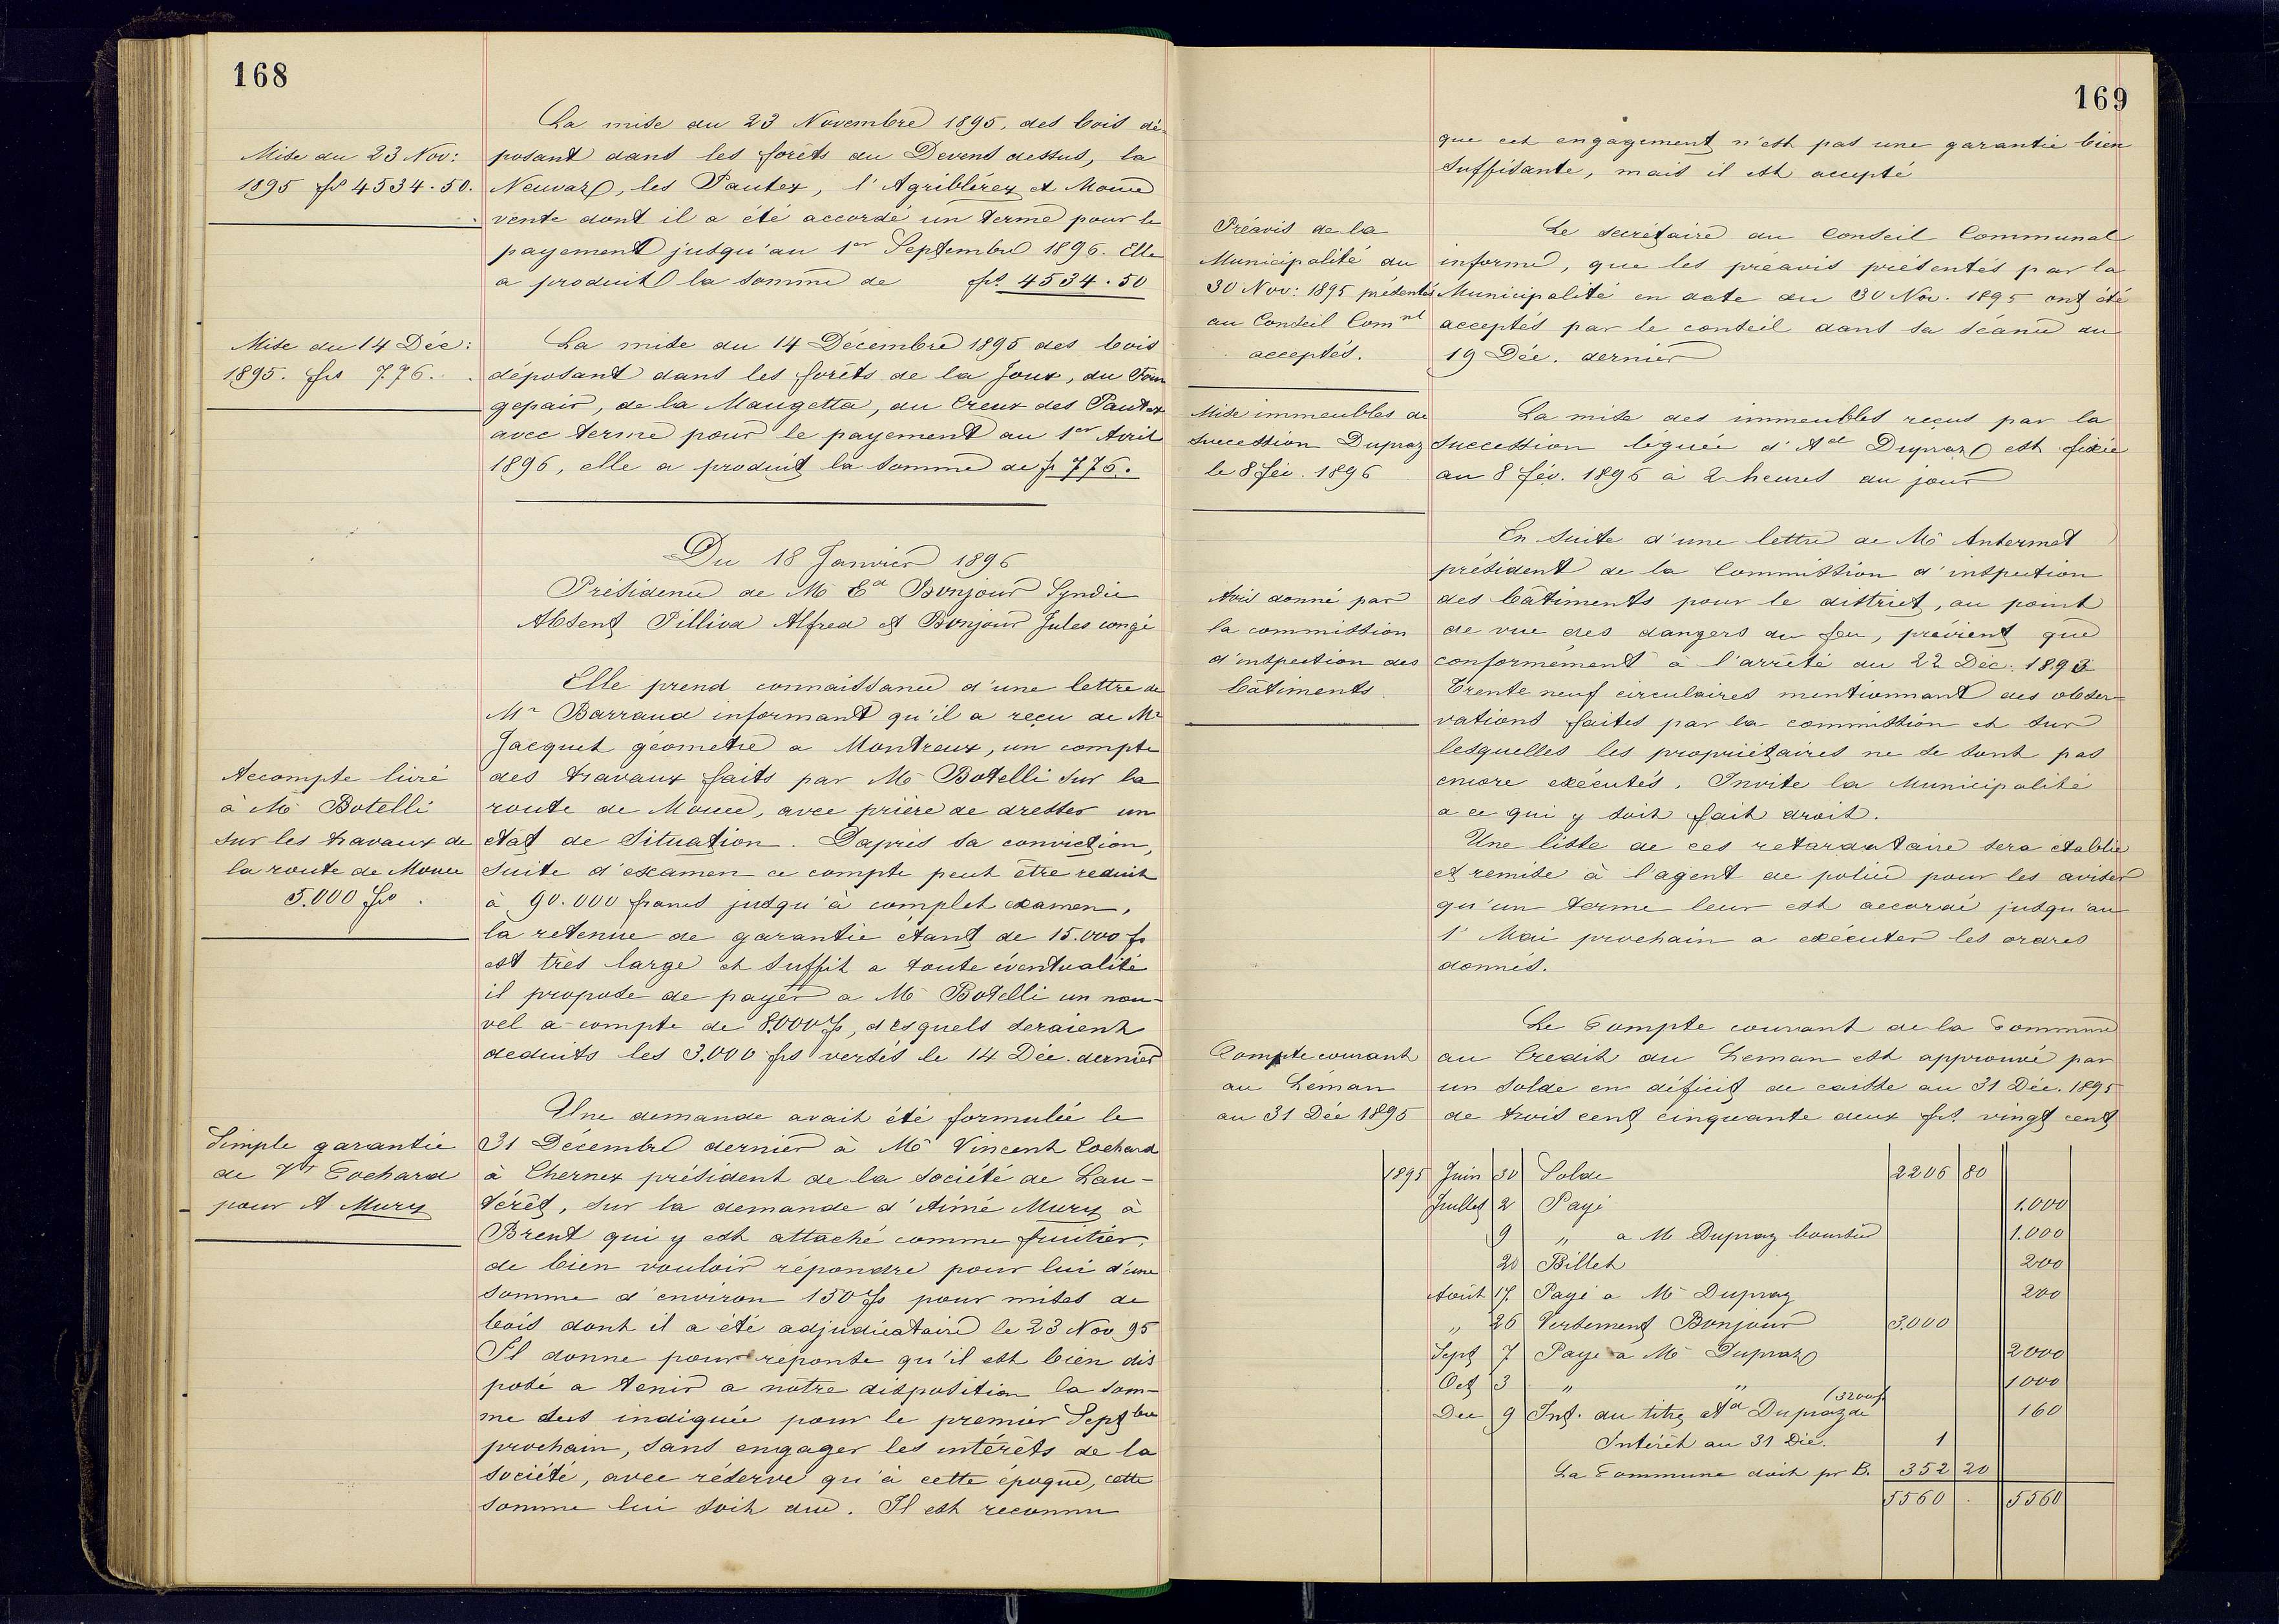 168
La mise du 23 Novembre 1895, des bois dé-
Mise du 23 Nov:
1895 frs 4534.50.
posant dans les forêts du Devens dessus, la
Neuvaz, les Pautex, l'Agriblérex et Mouce
vente dont il a été accordé un terme pour le
payement jusqu'au 1er Septembre 1896. Elle
a produit la somme de frs. 4534.50
Mise du 14 Déc:
1895. frs 776.
La mise du 14 Décembre 1895 des bois
déposant dans les forêts de la Joux, du
gepair, de la Maugetta, du Creux des Pautex
avec terme pour le payement au 1er Avril
1896, elle a produit la somme de fr 776.
Du 18 Janvier 1896
Présidence de Mr Ed Bonjour Syndic
Absent Pilliod Alfred et Bonjour Jules congé
Elle prend connaissance d'une lettre de
Mr Barraud informant qu'il a reçu de Mr
Jacquet géometre a Montreux, un compte
Accompte livré
à Mr Botelli
sur les travaux de
la route de Mouce
5.000 frs.
des travaux faits par Mr Botelli sur la
route de Mouce, avec prière de dresser un
etat de Situation. Daprès sa conviction,
suite d'examen ce compte peut être reduit
à 90.000 francs jusqu'à complet examen,
la retenue de garantie étant de 15.000 fr
est très large et suffit a toute éventualité
il propose de payer a Mr Botelli un nou-
vel a-compte de 8.000 frs, desquels seraient
deduits les 3.000 frs versés le 14 Déc. dernier
Une demande avait été formulée le
Simple garantie
de Vt Cochard
pour A Mury
31 Décembre dernier à Mr Vincent Cochard
à Chernex président de la société de Lau-
térêt, sur la demande d'Aimé Mury à
Brent qui y est attaché comme fruitier,
de bien vouloir répondre pour lui d'une
somme d'environ 150 frs pour mises de
bois dont il a été adjudicataire le 23 Nov 95
Il donne pour réponse qu'il est bien dis
posé a tenir a nôtre disposition la som-
me dess indiquée pour le premier Septbre
prochain, sans engager les intérêts de la
société, avec réserve qu'à cette époque, cette
somme lui soit due. Il est reconnu
169
que cet engagement n'est pas une garantie bien
suffisante, mais il est accepté
Préavis de la
Municipalité du
30 Nov: 1895 présentés
au Conseil Comnal
acceptés.
Le secrétaire du Conseil Communal
informe, que les préavis présentés par la
Municipalité en date du 30 Nov. 1895 ont été
acceptés par le conseil dans sa séance du
19 Déc. dernier
Mise immeubles de
succession Dupraz
le 8 fév. 1896
La mise des immeubles reçus par la
succession leguée d'Ad Dupraz est fixée
au 8 fév. 1896 à 2 heures du jour
En suite d'une lettre de Mr Antermet
président de la Commission d'inspection
Avis donné par
la commission
d'inspection des
bâtiments.
des bâtiments pour le district, au point
de vue des dangers du feu, prévient que
conformément à l'arrêté du 22 Déc. 1893
trente neuf circulaires mentionnant des obser-
vations faites par la commission et sur
lesquelles les propriétaires ne se sont pas
encore exécutés. Invite la Municipalité
a ce qui y soit fait droit.
Une liste de ces retardataire sera établie
et remise à l'agent de police pour les aviser
qu'un terme leur est accordé jusqu'au
1r Mai prochain a exécuter les ordres
donnés.
Compte courant
au Léman
au 31 Déc 1895
Le Compte courant de la Commune
au Credit du Leman est approuvé par
un solde en déficit de caisse au 31 Déc. 1895
de trois cent cinquante deux frs. vingt cent
1895 Juin 30 Solde 2206 80
Juillet 2 Payé 1.000
9 " a Mr Dupraz boursier 1.000
20 Billet 200
Août 17 Payé a Mr Dupraz 200
" 26 Versement Bonjour 3.000
Sept 7 Payé a Mr Dupraz 2000
Oct 3 " " 1000
Dec 9 Int. du titre Ad Dupraz de (3200 fr 160
Intérêt au 31 Déc. 1
La Commune doit pr B. 352 20
5560 . 5560